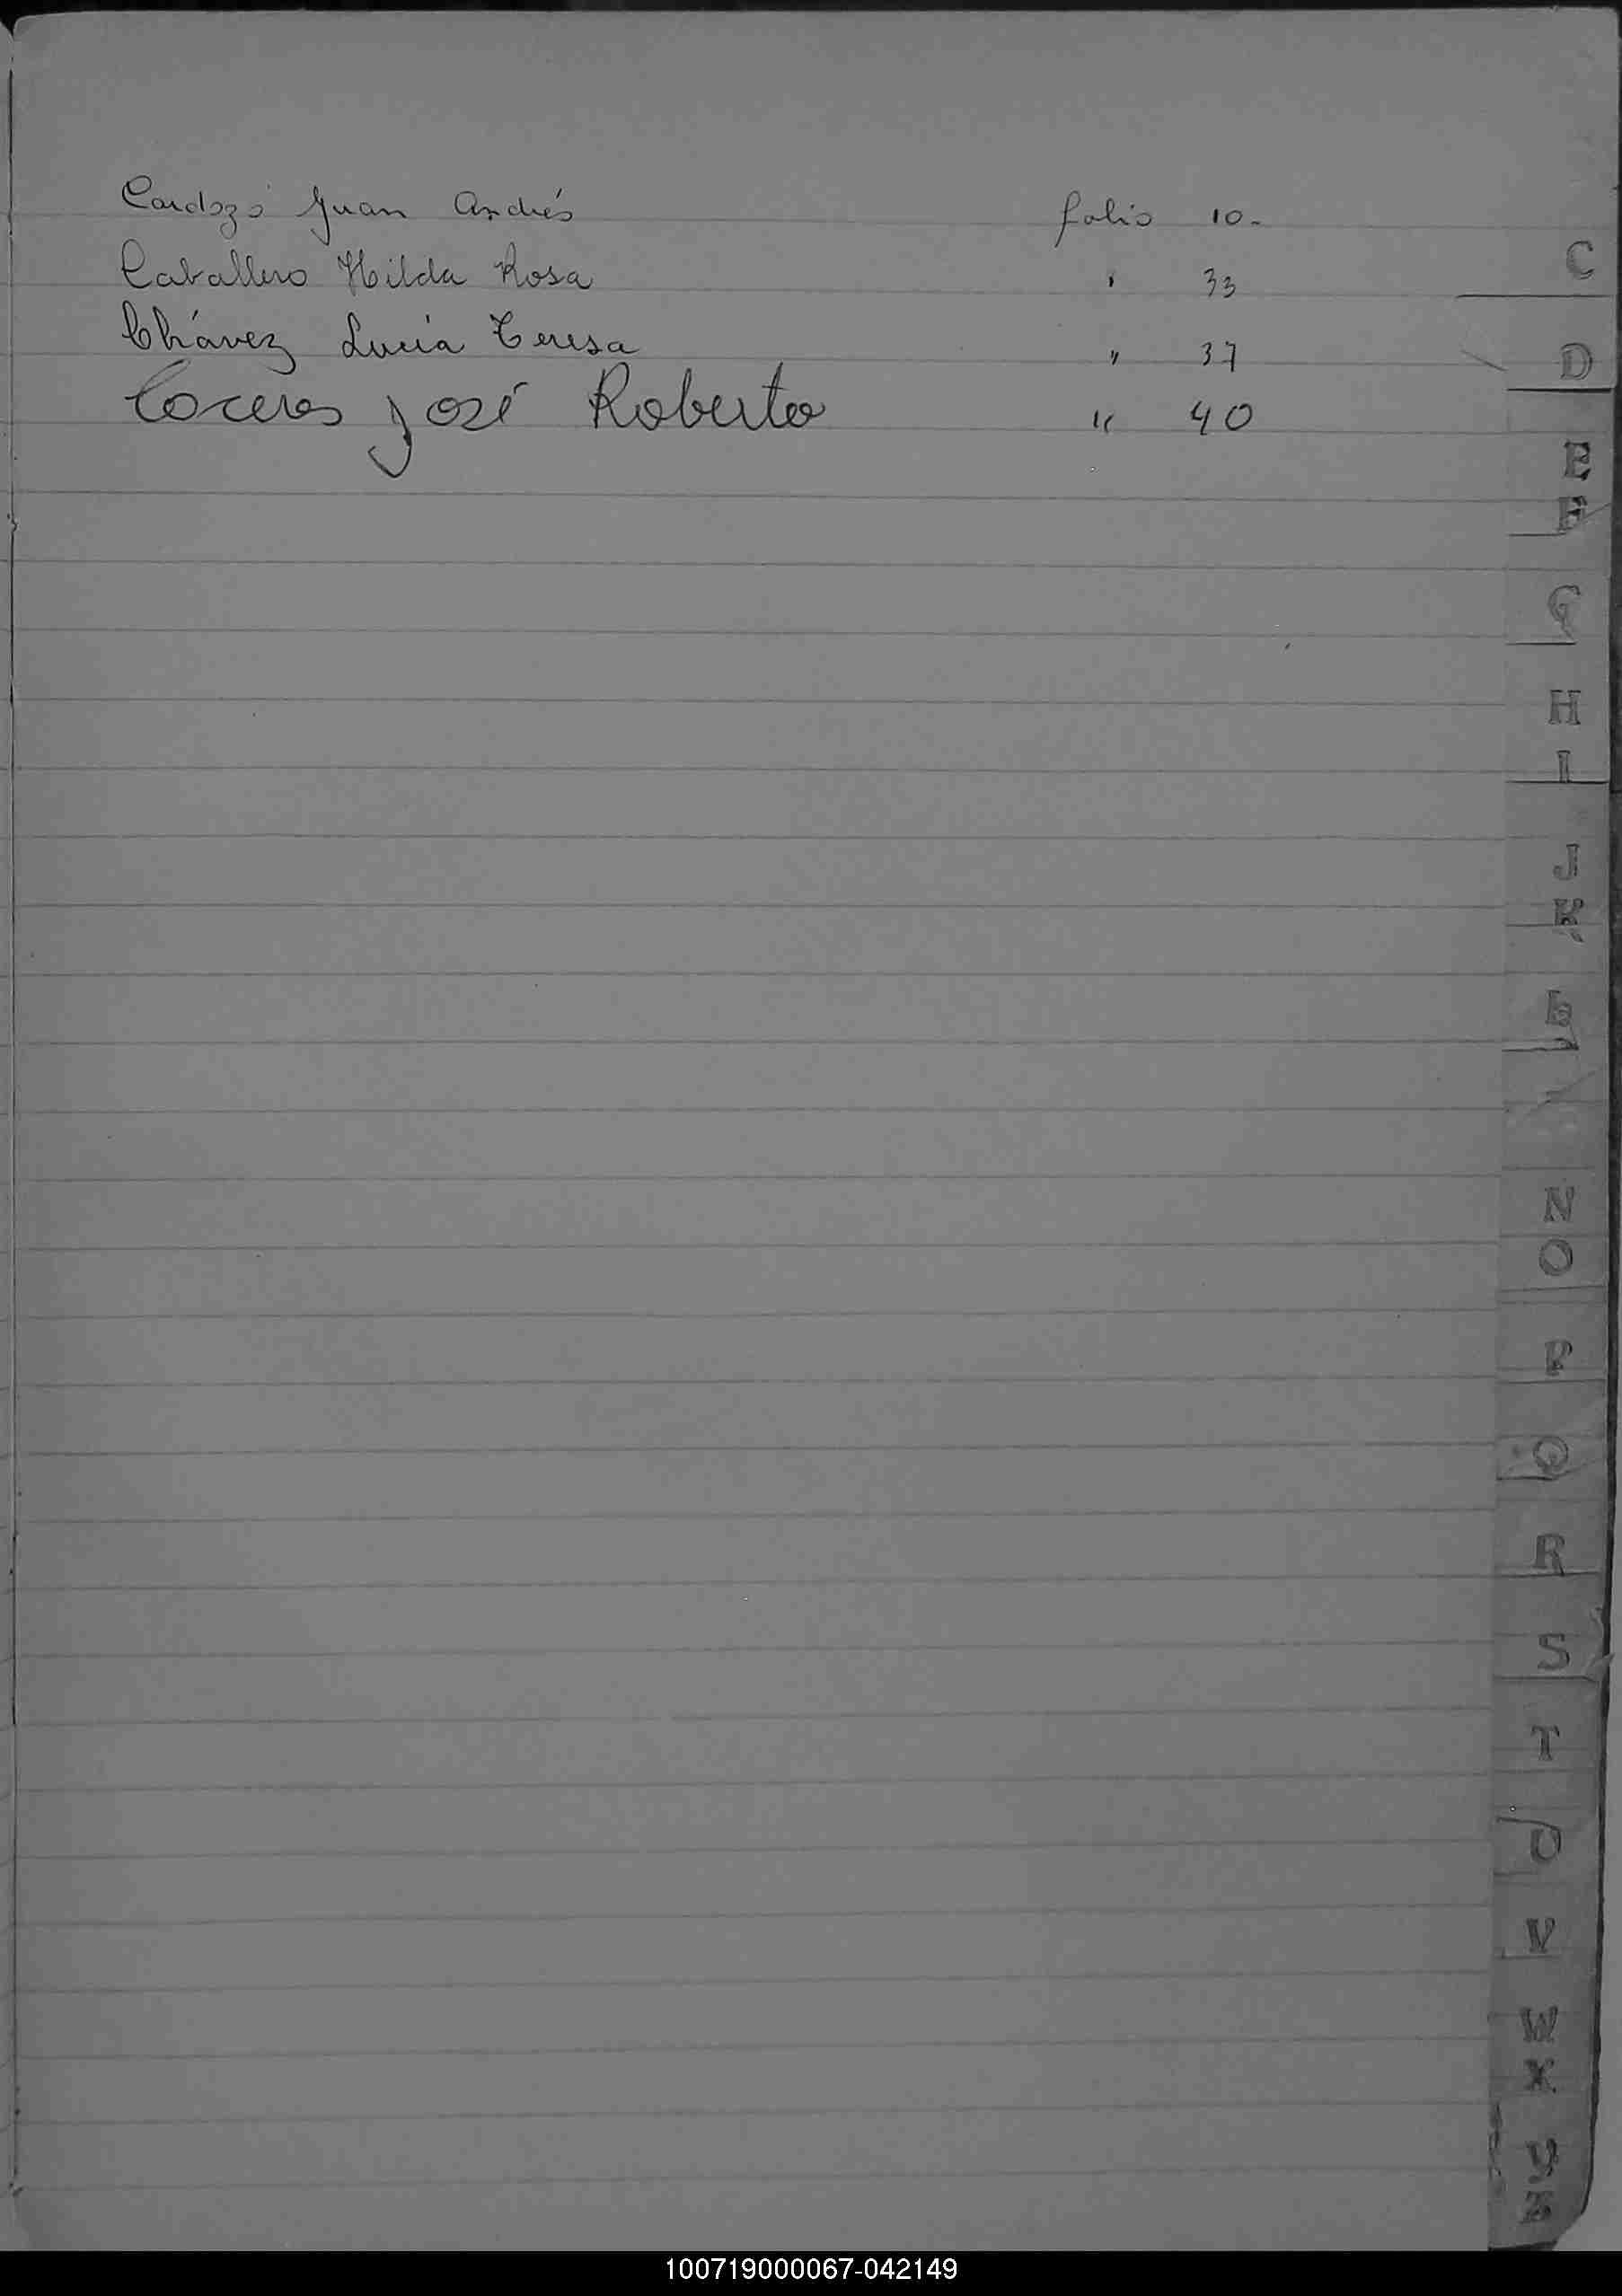 Cardozo Juan Andrés folio 10-
Caballero Hilda Rosa " 33
Chávez Lucia Teresa " 37
Coceres José Roberto " 40
C
D
E
F
G
H
I
J
K
L
N
O
P
Q
R
S
T
U
V
W
X
Y
Z
100719000067-042149